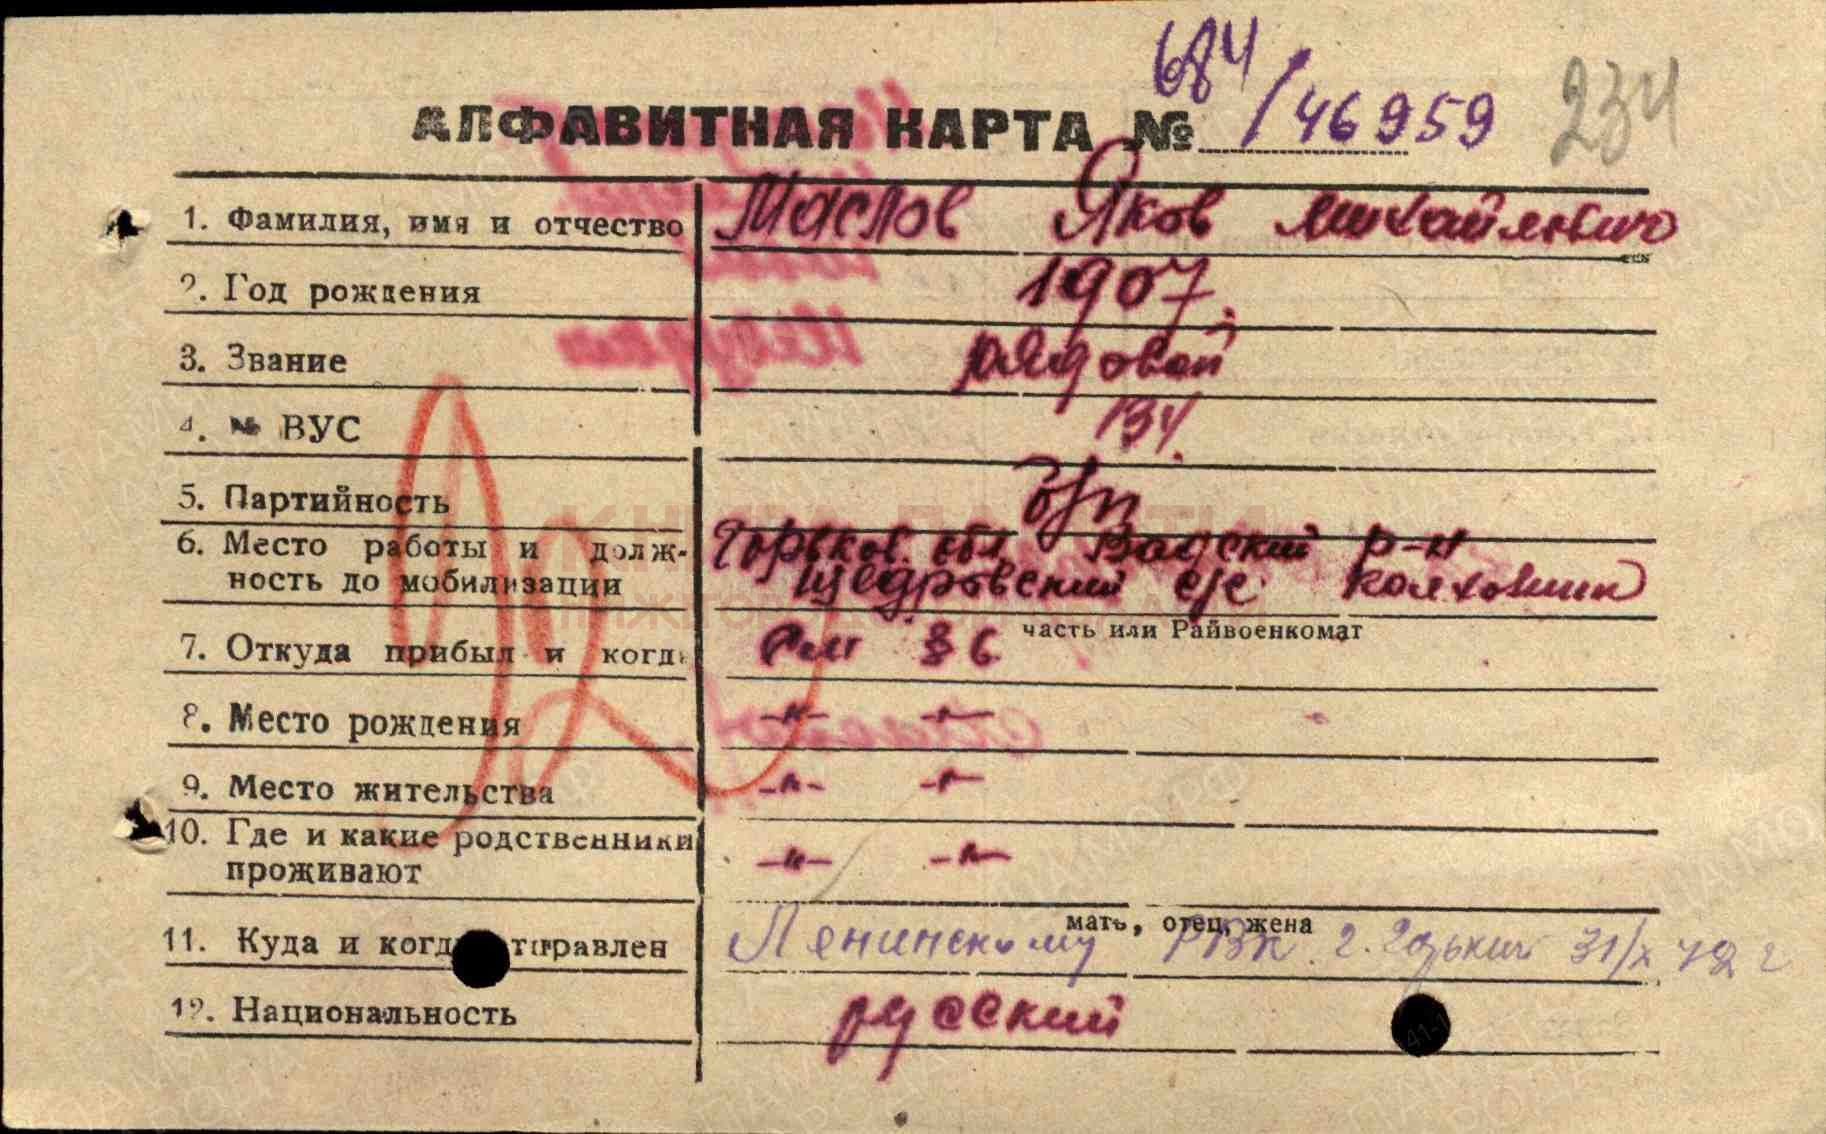 684
АЛФАВИТНАЯ КАРТА № /46959 234
1. Фамилия, имя и отчество Маслов Яков Михайлович
2. Год рождения 1907
3. Звание рядовой
4. № ВУС 134
5. Партийность б/п
6. Место работы и долж- Горьков. обл Вадский р-н
ность до мобилизации Щедровский с/с колхозник
часть или Райвоенкомат
7. Откуда прибыл и когда
8. Место рождения -"- -"-
9. Место жительства -"- -"-
10. Где и какие родственники
проживают -"- -"-
мать, отец, жена
11. Куда и когда отправлен Ленинскому РВК г. Горький 31/X 42 г
12. Национальность русский
КНИГА ПАМЯТИ